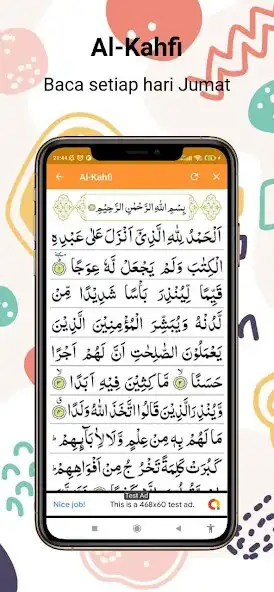 Al-Kahfi
Baca setiap hari Jumat
22:44
Al-Kahfi
بِسْمِ اللّٰهِ الرَّحْمٰنِ الرَّحِيْمِ
اَلْحَمْدُ لِلّٰهِ الَّذِيْٓ اَنْزَلَ عَلٰى عَبْدِهِ
الْكِتٰبَ وَلَمْ يَجْعَلْ لَّهٗ عِوَجًا ١
قَيِّمًا لِّيُنْذِرَ بَأْسًا شَدِيْدًا مِّنْ
لَّدُنْهُ وَيُبَشِّرَ الْمُؤْمِنِيْنَ الَّذِيْنَ
يَعْمَلُوْنَ الصّٰلِحٰتِ اَنَّ لَهُمْ اَجْرًا
حَسَنًا ٢ مَّاكِثِيْنَ فِيْهِ اَبَدًا ٣
وَّيُنْذِرَ الَّذِيْنَ قَالُوا اتَّخَذَ اللّٰهُ وَلَدًا ٤
مَا لَهُمْ بِهٖ مِنْ عِلْمٍ وَّلَا لِاٰبَاۤىِٕهِمْ
كَبُرَتْ كَلِمَةً تَخْرُجُ مِنْ اَفْوَاهِهِمْ
Test Ad
Nice job!
This is a 468x60 test ad.